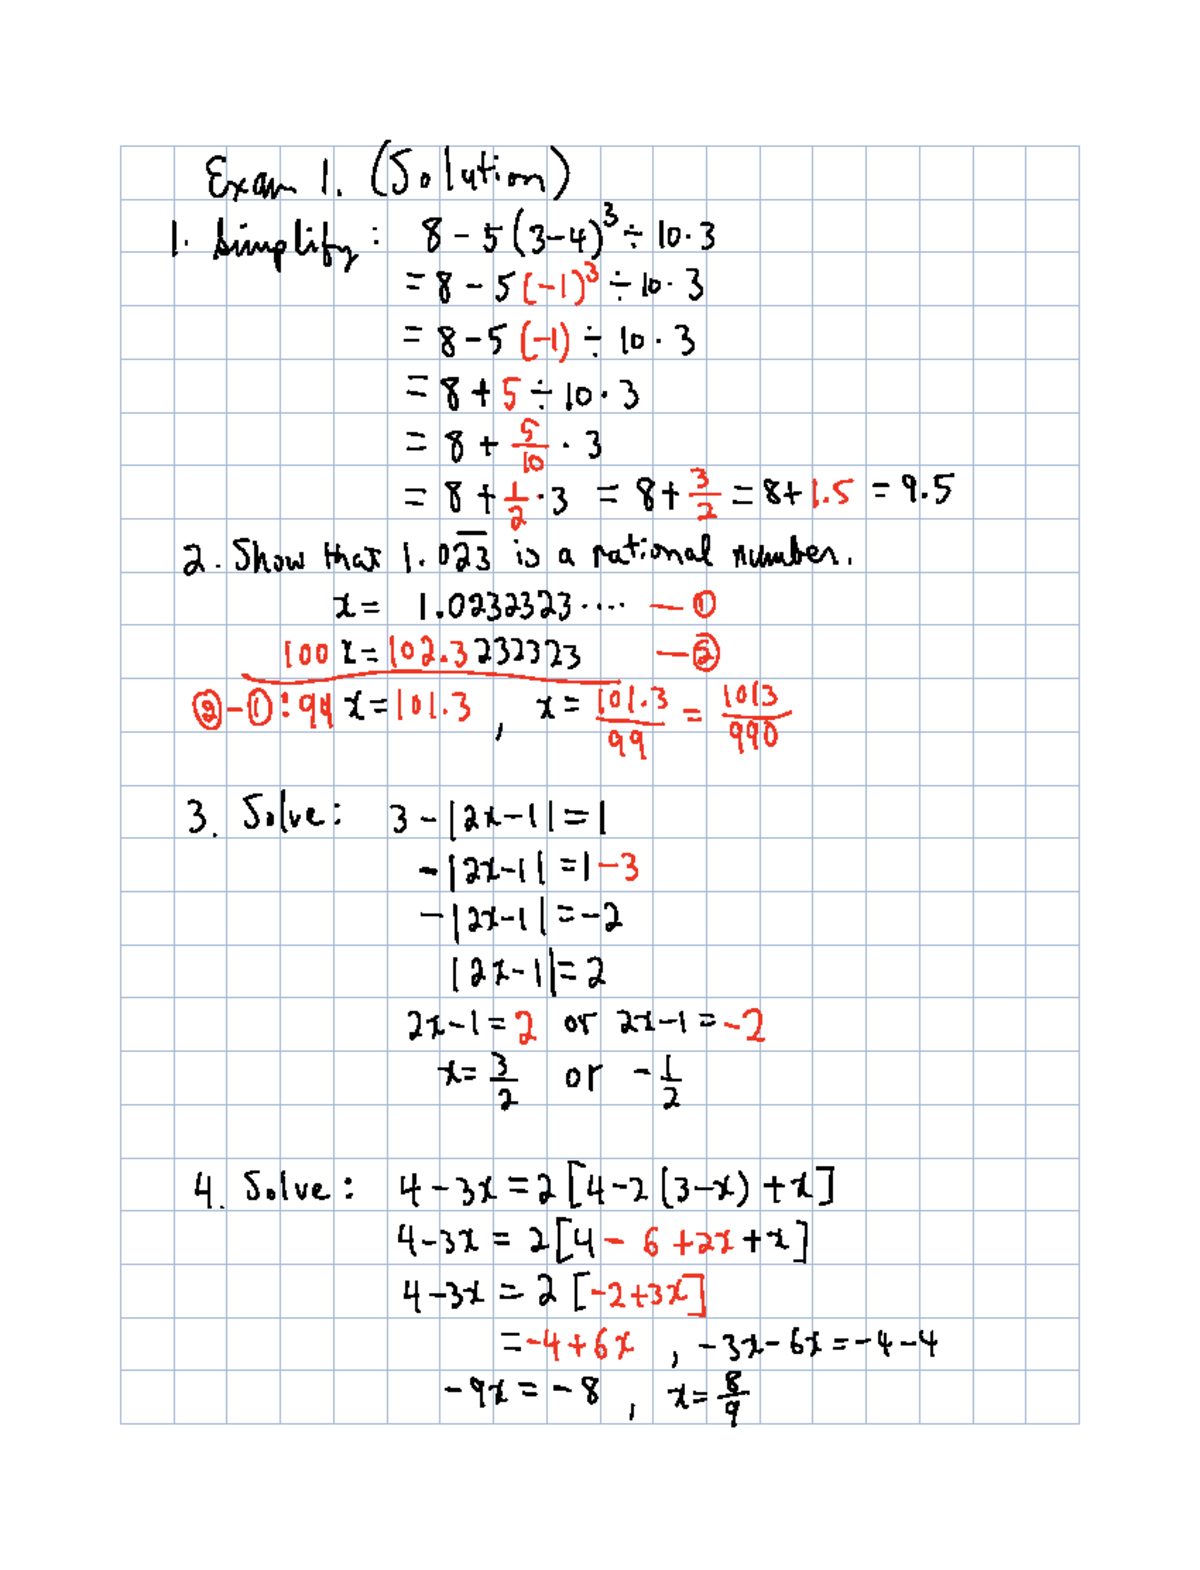 Exam 1. (Solution)
1. Simplify: 8 - 5(3-4)³ ÷ 10·3
= 8 - 5(-1)³ ÷ 10·3
= 8-5 (-1) ÷ 10·3
= 8 + 5 ÷ 10·3
= 8 + 5/10 · 3
= 8 + 1/2 · 3 = 8 + 3/2 = 8 + 1.5 = 9.5
2. Show that 1.02̅3̅ is a rational number.
x = 1.0232323···· — ①
100 x = 102.3232323 — ②
② - ① : 99 x = 101.3 , x = 101.3/99 = 1013/990
3. Solve: 3 - |2x-1| = 1
-|2x-1| = 1-3
-|2x-1| = -2
|2x-1| = 2
2x-1 = 2 or 2x-1 = -2
x = 3/2 or -1/2
4. Solve: 4-3x = 2[4-2(3-x)+x]
4-3x = 2[4 - 6 + 2x + x]
4-3x = 2 [-2+3x]
= -4+6x , -3x-6x = -4-4
-9x = -8 , x = 8/9